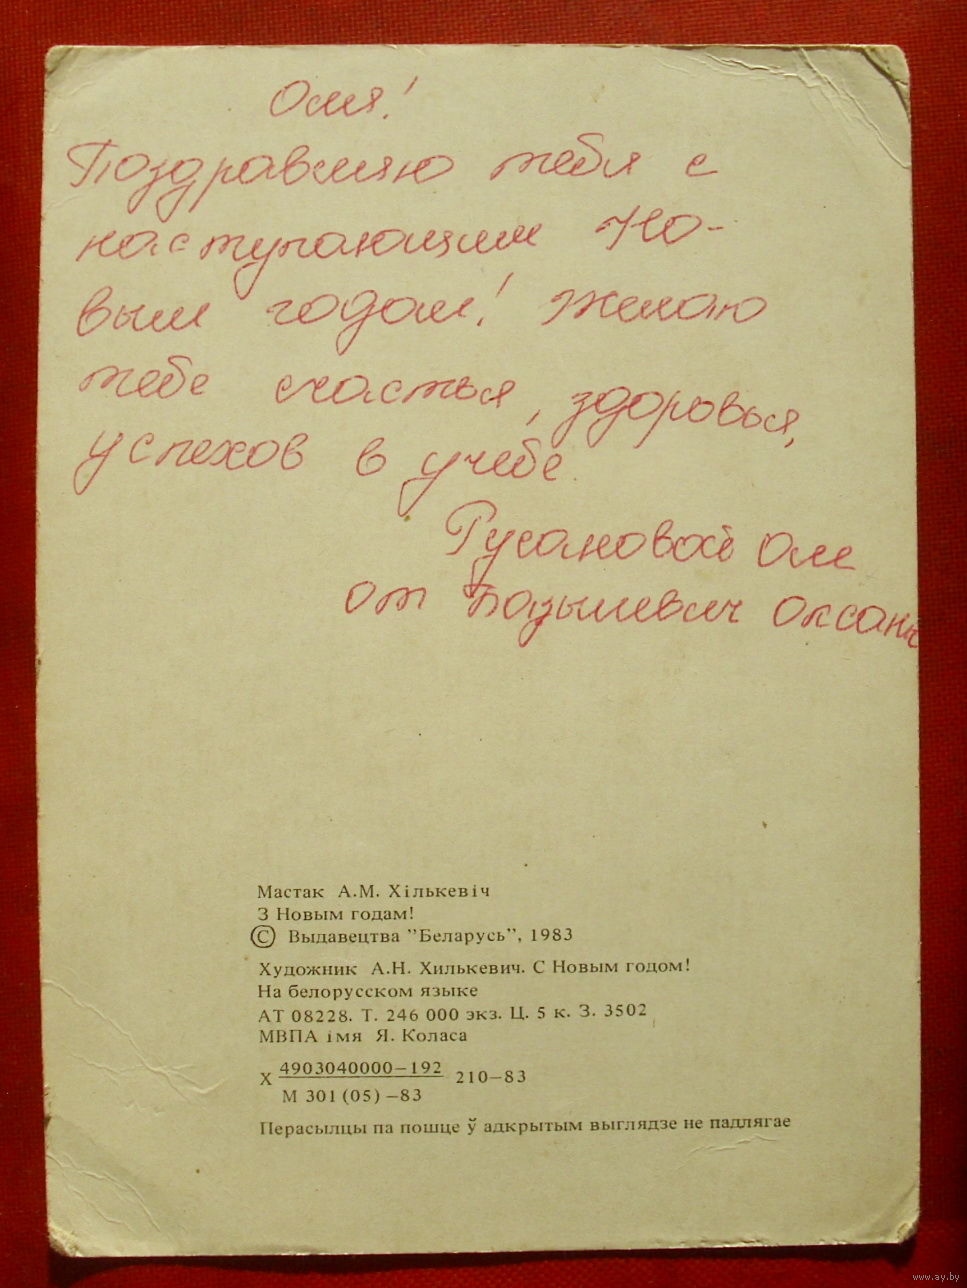 Оля!
Поздравляю тебя с
наступающим Но-
вым годом! Желаю
тебе счастья, здоровья,
успехов в учебе.
Русановой Оле
от Оксаны
Мастак А.М. Хількевіч
З Новым годам!
© Выдавецтва "Беларусь", 1983
Художник А.Н. Хилькевич. С Новым годом!
На белорусском языке
АТ 08228. Т. 246 000 экз. Ц. 5 к. З. 3502
МВПА імя Я. Коласа
Х 4903040000—192 210—83
М 301 (05) —83
Перасылцы па пошце ў адкрытым выглядзе не падлягае
www.ay.by